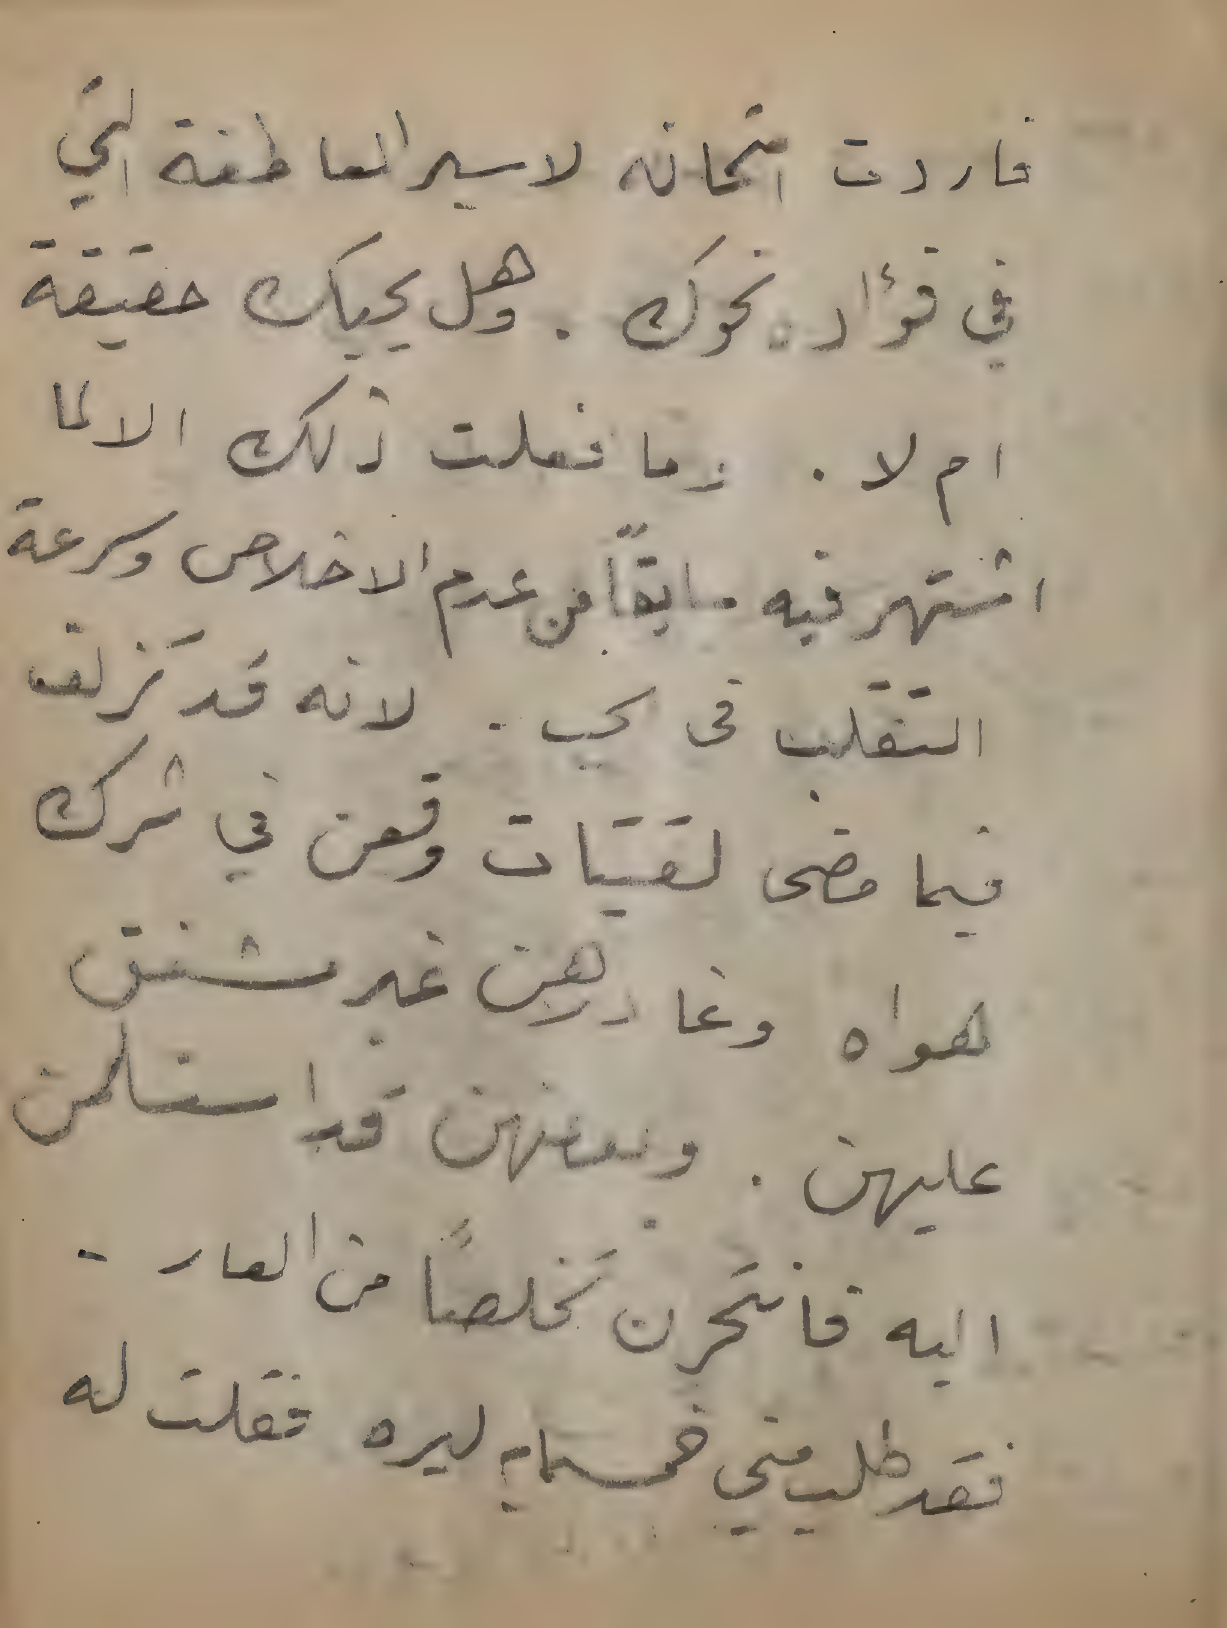 فاردت امتحانه لاسبر العاطفة التي
في فؤاده نحوك . وهل يحبك حقيقة
ام لا . وما فعلت ذلك الا لما
اشتهر فيه سابقاً من عدم الاخلاص وسرعة
التقلب في الحب . لانه قد تزلف
فيما مضى لفتيات وقعن في شرك
هواه وغادرهن غير مشفق
عليهن . وبعضهن قد استسلمن
اليه فانتحرن تخلصاً من العار -
فقد طلب مني خمسماية ليره فقلت له